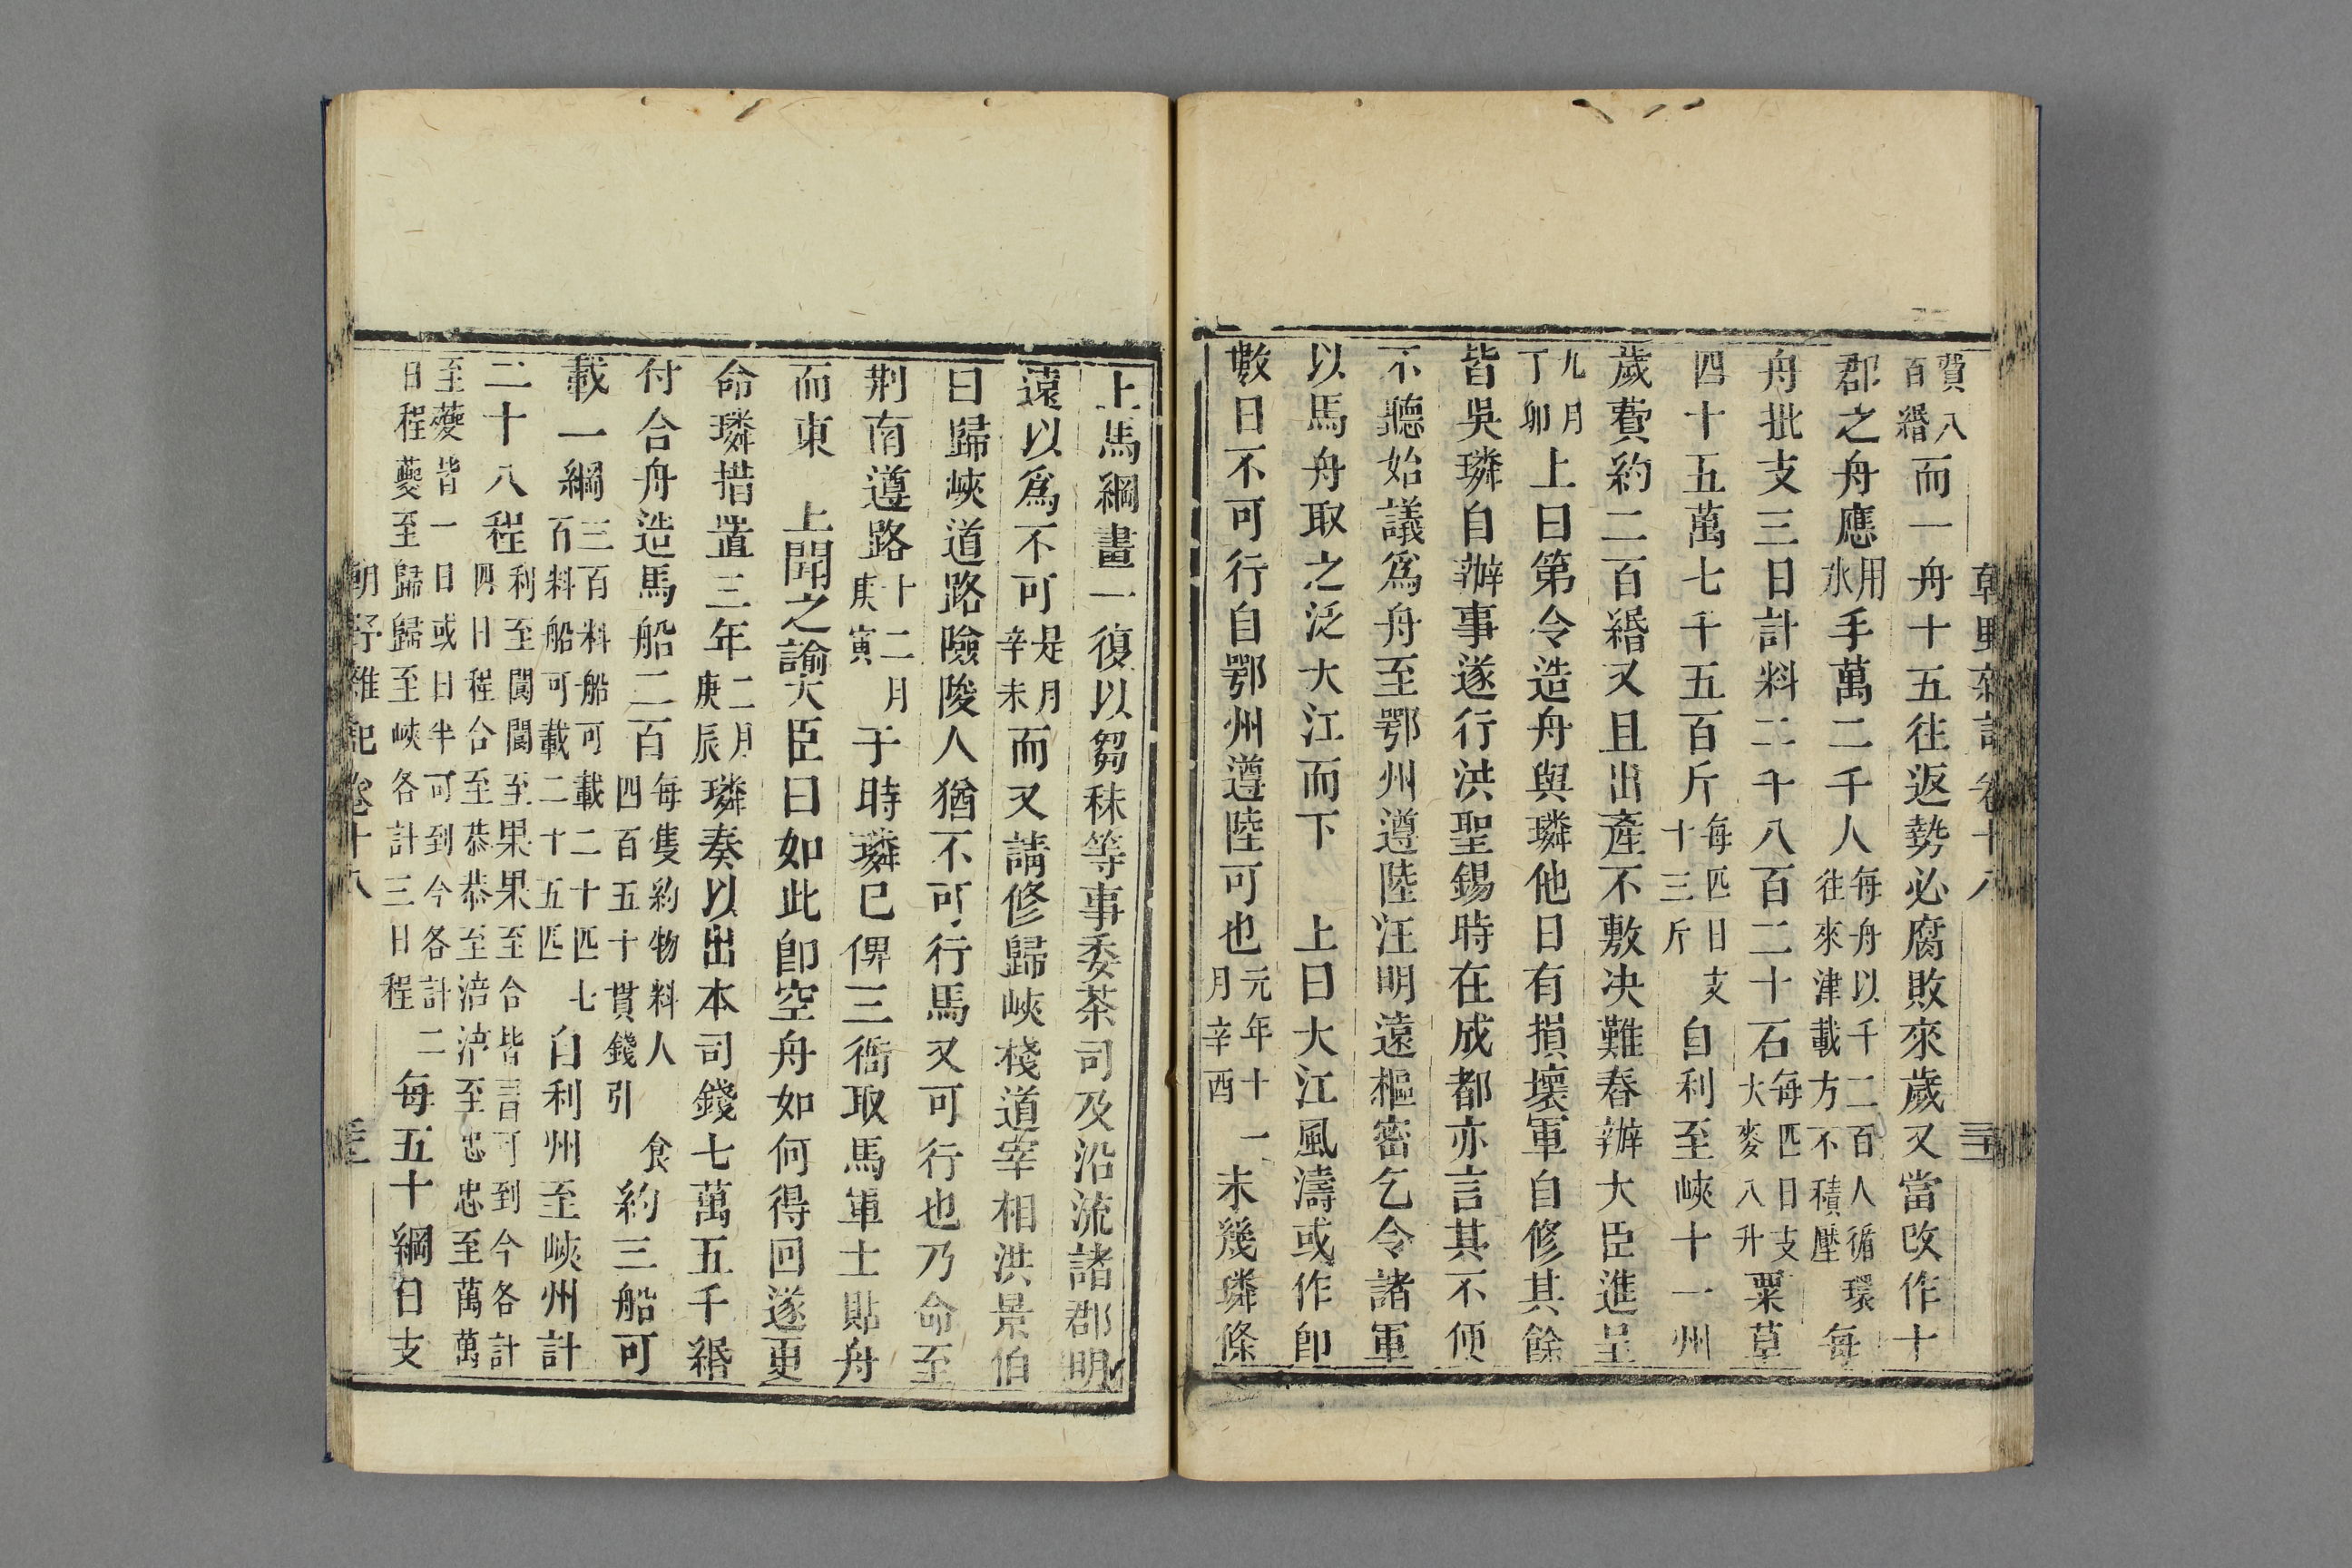 朝野雜記卷十八 三十
費八百緡而一舟十五往返勢必腐敗來歲又當改作十
郡之舟應用水手萬二千人每舟以千二百人循環往來津載方不積壓每
舟批支三日計料二千八百二十石每匹日支大麥八升粟草
四十五萬七千五百斤每匹日支十三斤自利至峽十一州
歲費約二百緡又且出產不敷決難舂辦大臣進呈
九月丁卯上曰第令造舟與璘他日有損壞軍自修其餘
皆吳璘自辦事遂行洪聖錫時在成都亦言其不便
不聽始議爲舟至鄂州遵陸汪明遠樞密乞令諸軍
以馬舟取之泛大江而下 上曰大江風濤或作卽
數日不可行自鄂州遵陸可也元年十一月辛酉未幾璘條
上馬綱畫一復以芻秣等事委茶司及沿流諸郡明
遠以爲不可是月辛未而又請修歸峽棧道宰相洪景伯
曰歸峽道路險陖人猶不可行馬又可行也乃命至
荆南遵路十二月庚寅于時璘巳俾三衙取馬軍士貼舟
而東 上聞之諭大臣曰如此卽空舟如何得回遂更
命璘措置三年二月庚辰璘奏以出本司錢七萬五千緡
付合舟造馬船二百每隻約物料人食四百五十貫錢引約三船可
載一綱三百料船可載二十匹七百料船可載二十五匹自利州至峽州計
二十八程利至閬閬至果果至合皆言可到今各計四日程合至恭恭至涪涪至忠忠至萬萬
至夔皆一日或日半可到今各計二日程夔至歸歸至峽各計三日程每五十綱日支
朝野雜記卷十八